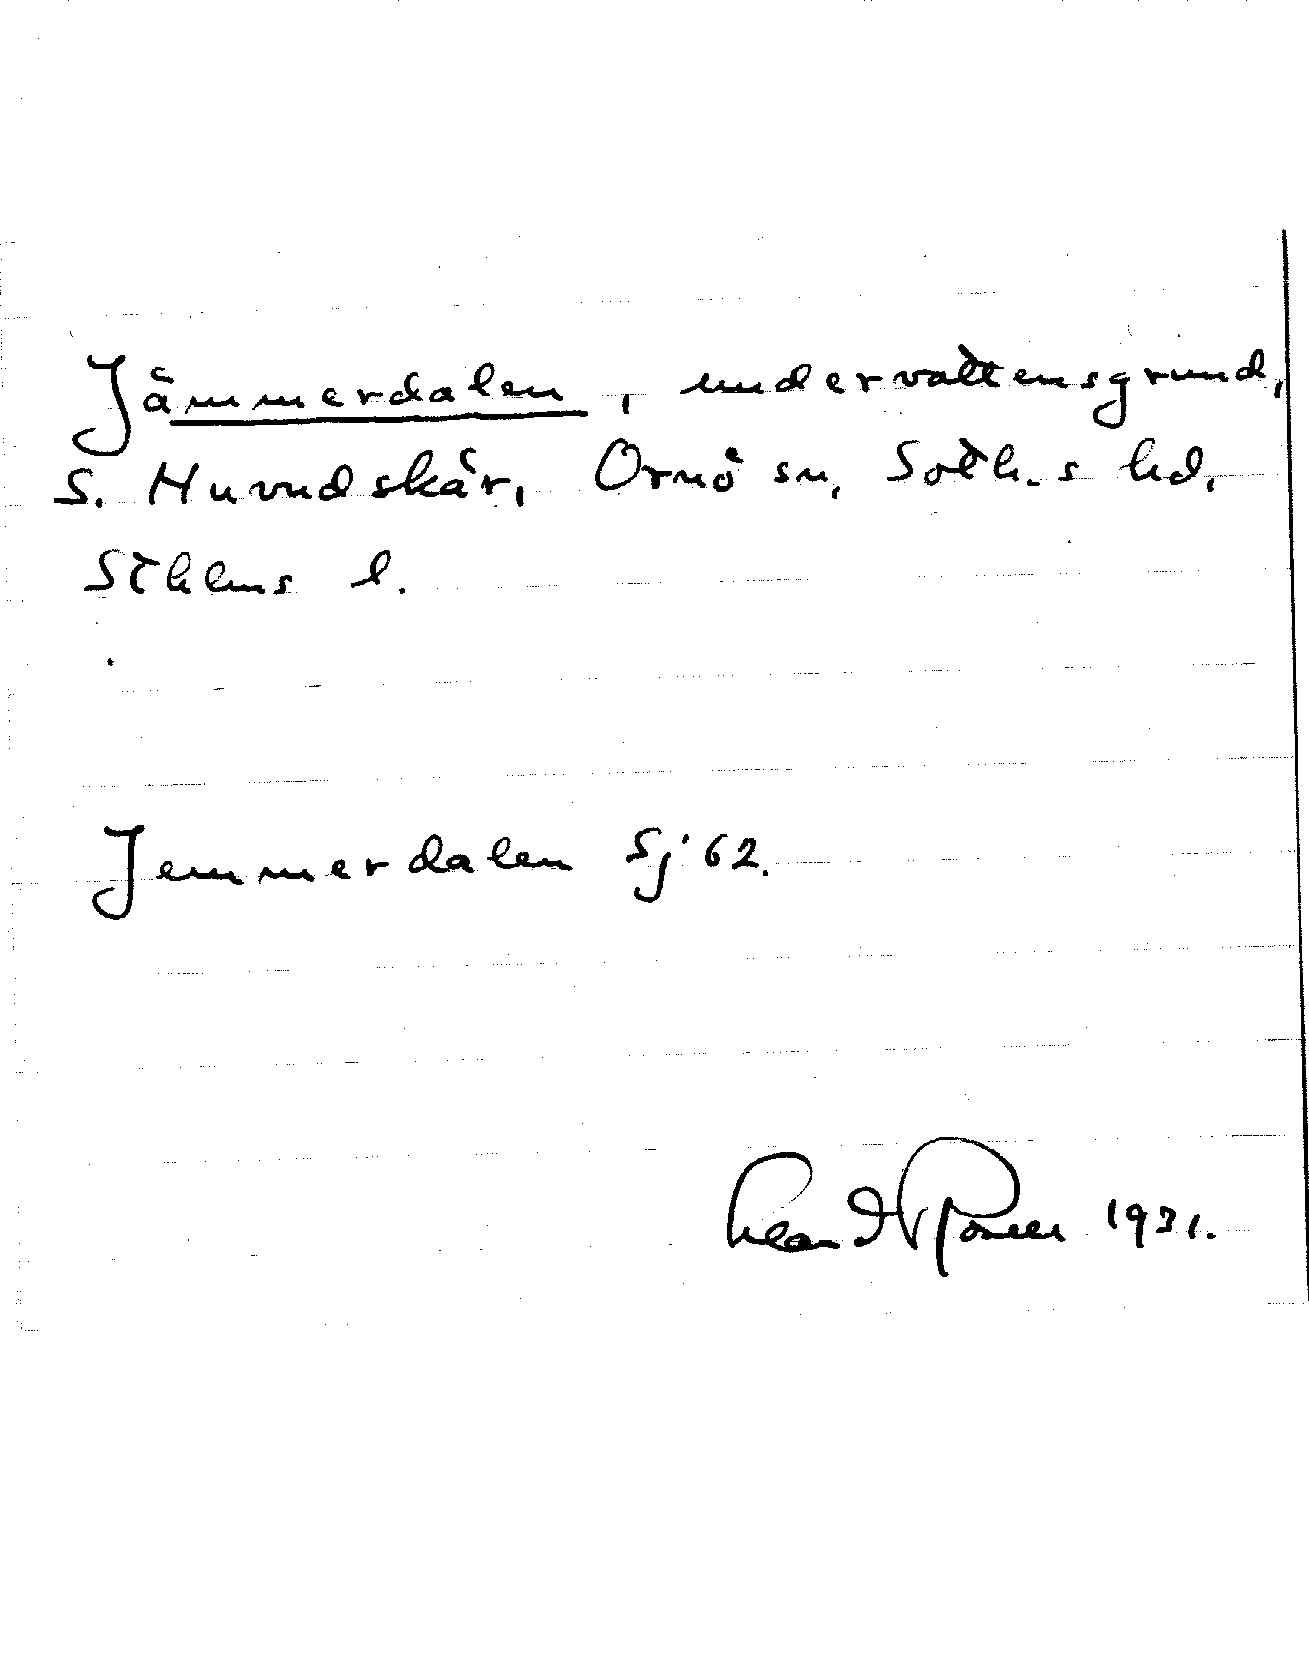 Jämmerdalen, undervattensgrund,
S. Huvudskär, Ornö sn, Soth.s hd,
Sthlms l.
Jemmerdalen Sj 62.
1931.